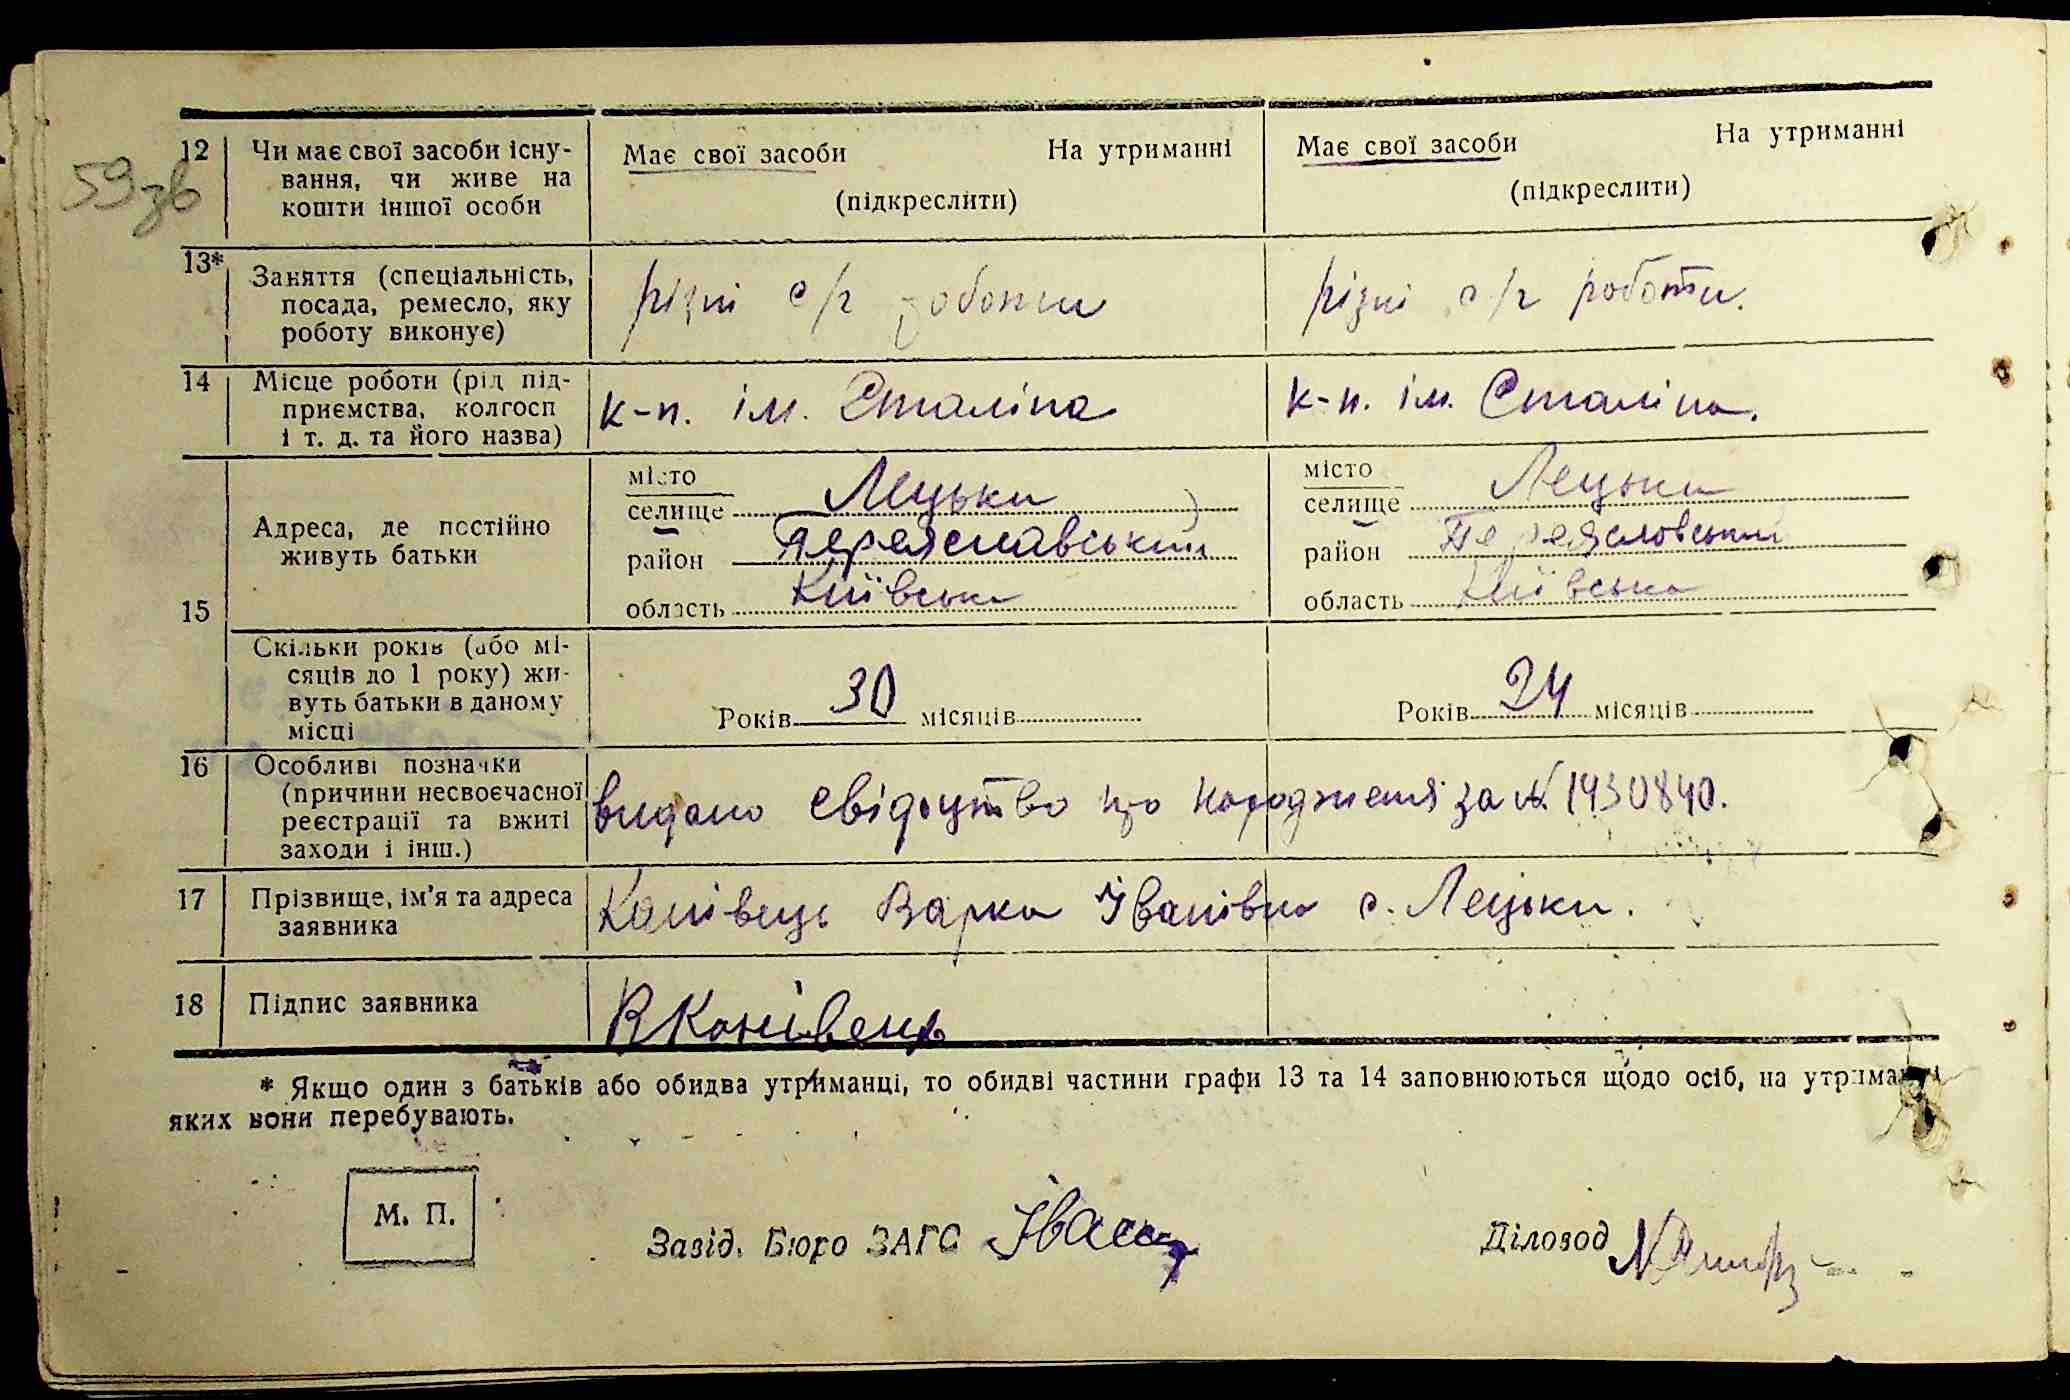 59зв
12 Чи має свої засоби існу-
вання, чи живе на
кошти іншої особи
Має свої засоби На утриманні
(підкреслити)
Має свої засоби На утриманні
(підкреслити)
13* Заняття (спеціальність,
посада, ремесло, яку
роботу виконує)
різні с/г роботи
різні с/г роботи.
14 Місце роботи (рід під-
приємства, колгосп
і т. д. та його назва)
к-п. ім. Сталіна
к-п. ім. Сталіна.
15
Адреса, де постійно
живуть батьки
місто
селище Лецьки
район Переяславський
область Київська
місто
селище Лецьки
район Переяславський
область Київська
Скільки років (або мі-
сяців до 1 року) жи-
вуть батьки в даному
місці
Років 30 місяців
Років 24 місяців
16 Особливі позначки
(причини несвоєчасної
реєстрації та вжиті
заходи і інш.)
видано свідоцтво про народження за № 1430840.
17 Прізвище, ім'я та адреса
заявника
Канівець Варка Іванівна с. Лецьки.
18 Підпис заявника
В Канівець
* Якщо один з батьків або обидва утриманці, то обидві частини графи 13 та 14 заповнюються щодо осіб, на утриманні
яких вони перебувають.
М. П.
Завід. Бюро ЗАГС
Діловод